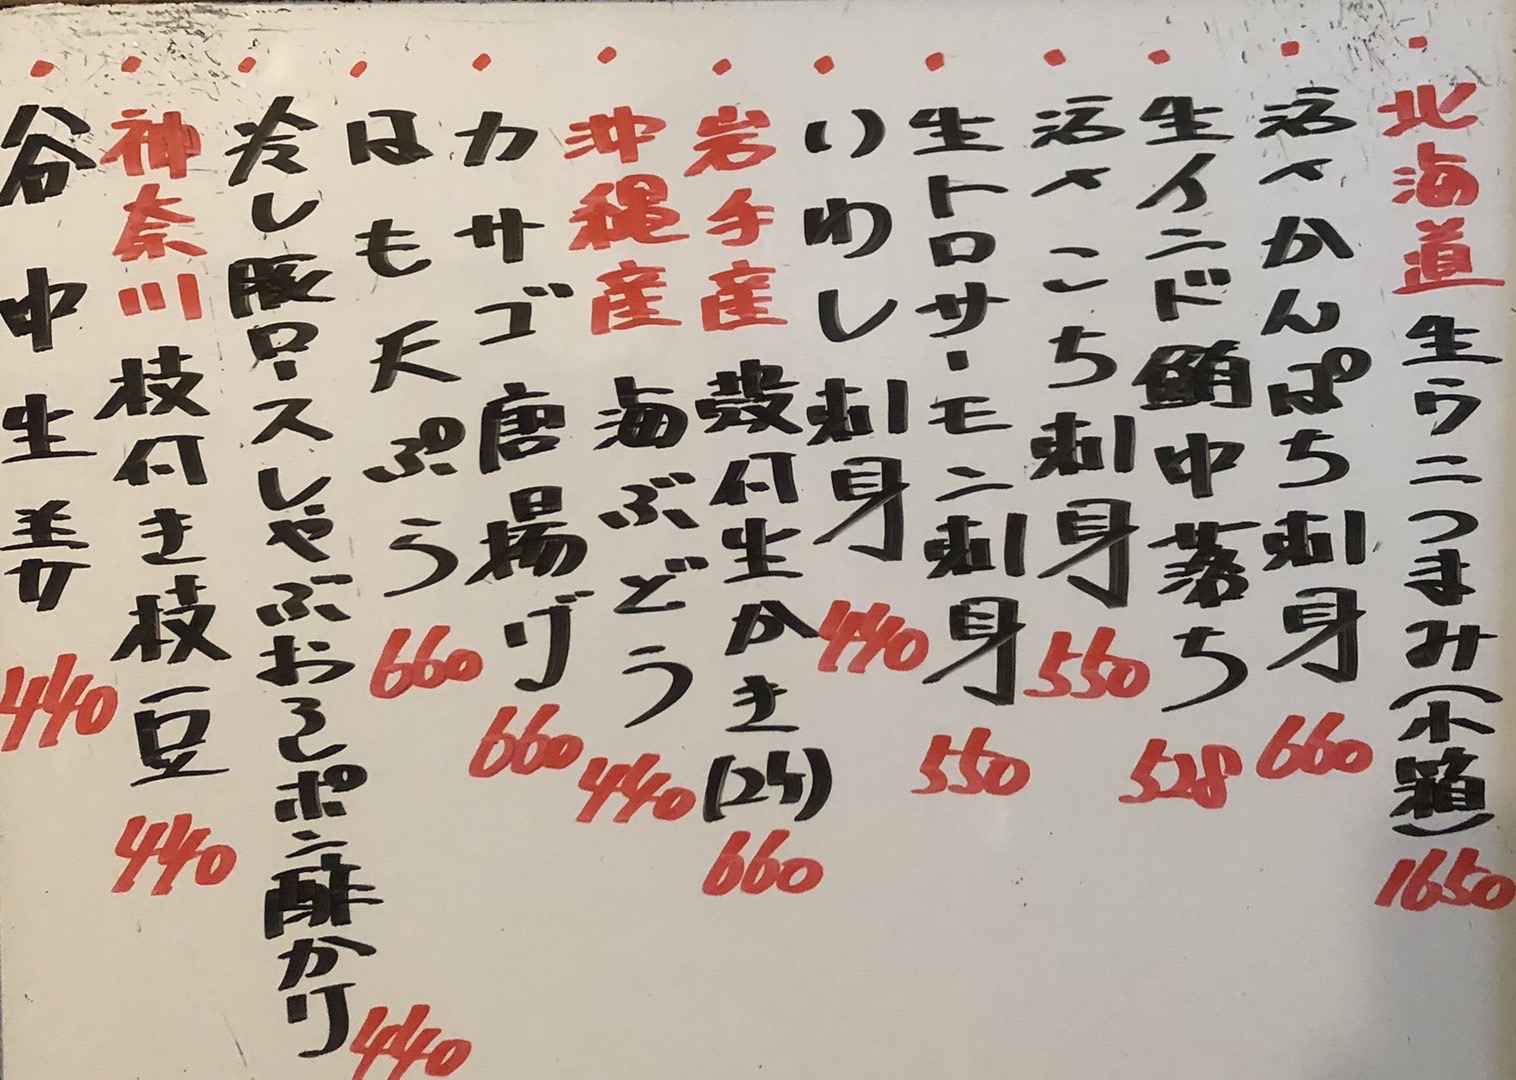 ・北海道生ウニつまみ(小箱)1650
・活〆かんぱち刺身660
・生インド鮪中落ち528
・活〆こち刺身550
・生トロサーモン刺身550
・いわし刺身440
・岩手産殻付生かき(2ケ)660
・沖縄産海ぶどう440
・カサゴ唐揚げ660
・はも天ぷう660
・冷し豚ロースしゃぶおろしポン酢かけ440
・神奈川枝付き枝豆440
・谷中生姜440